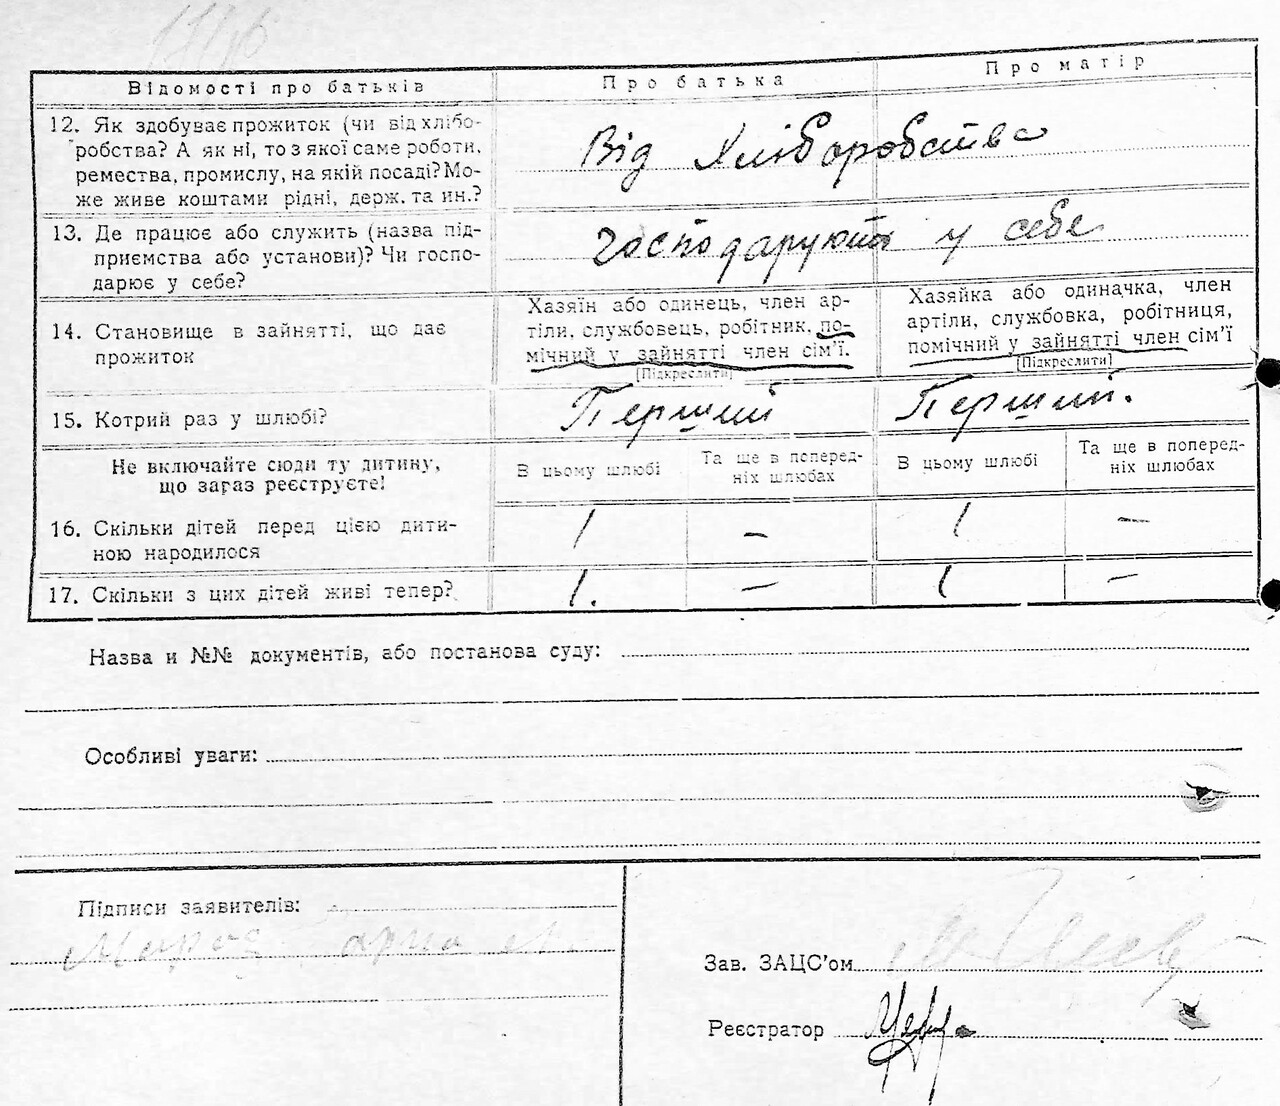 Відомості про батьків
Про батька
Про матір
12. Як здобуває прожиток (чи від хлібо-
робства? А як ні, то з якої саме роботи,
ремества, промислу, на якій посаді? Мо-
же живе коштами рідні, держ. та ин.?
Від хліборобства
13. Де працює або служить (назва під-
приємства або установи)? Чи госпо-
дарює у себе?
Господарують у себе
14. Становище в зайнятті, що дає
прожиток
Хазяїн або одинець, член ар-
тіли, службовець, робітник, по-
мічний у зайнятті член сім'ї.
(Підкреслити)
Хазяйка або одиначка, член
артіли, службовка, робітниця,
помічний у зайнятті член сім'ї
(Підкреслити)
15. Котрий раз у шлюбі?
Перший
Перший.
Не включайте сюди ту дитину,
що зараз реєструєте!
В цьому шлюбі
Та ще в поперед-
ніх шлюбах
В цьому шлюбі
Та ще в поперед-
ніх шлюбах
16. Скільки дітей перед цією дити-
ною народилося
1
—
1
—
17. Скільки з цих дітей живі тепер?
1.
—
1
—
Назва и №№ документів, або постанова суду:
Особливі уваги:
Підписи заявителів:
Зав. ЗАЦС'ом
Реєстратор